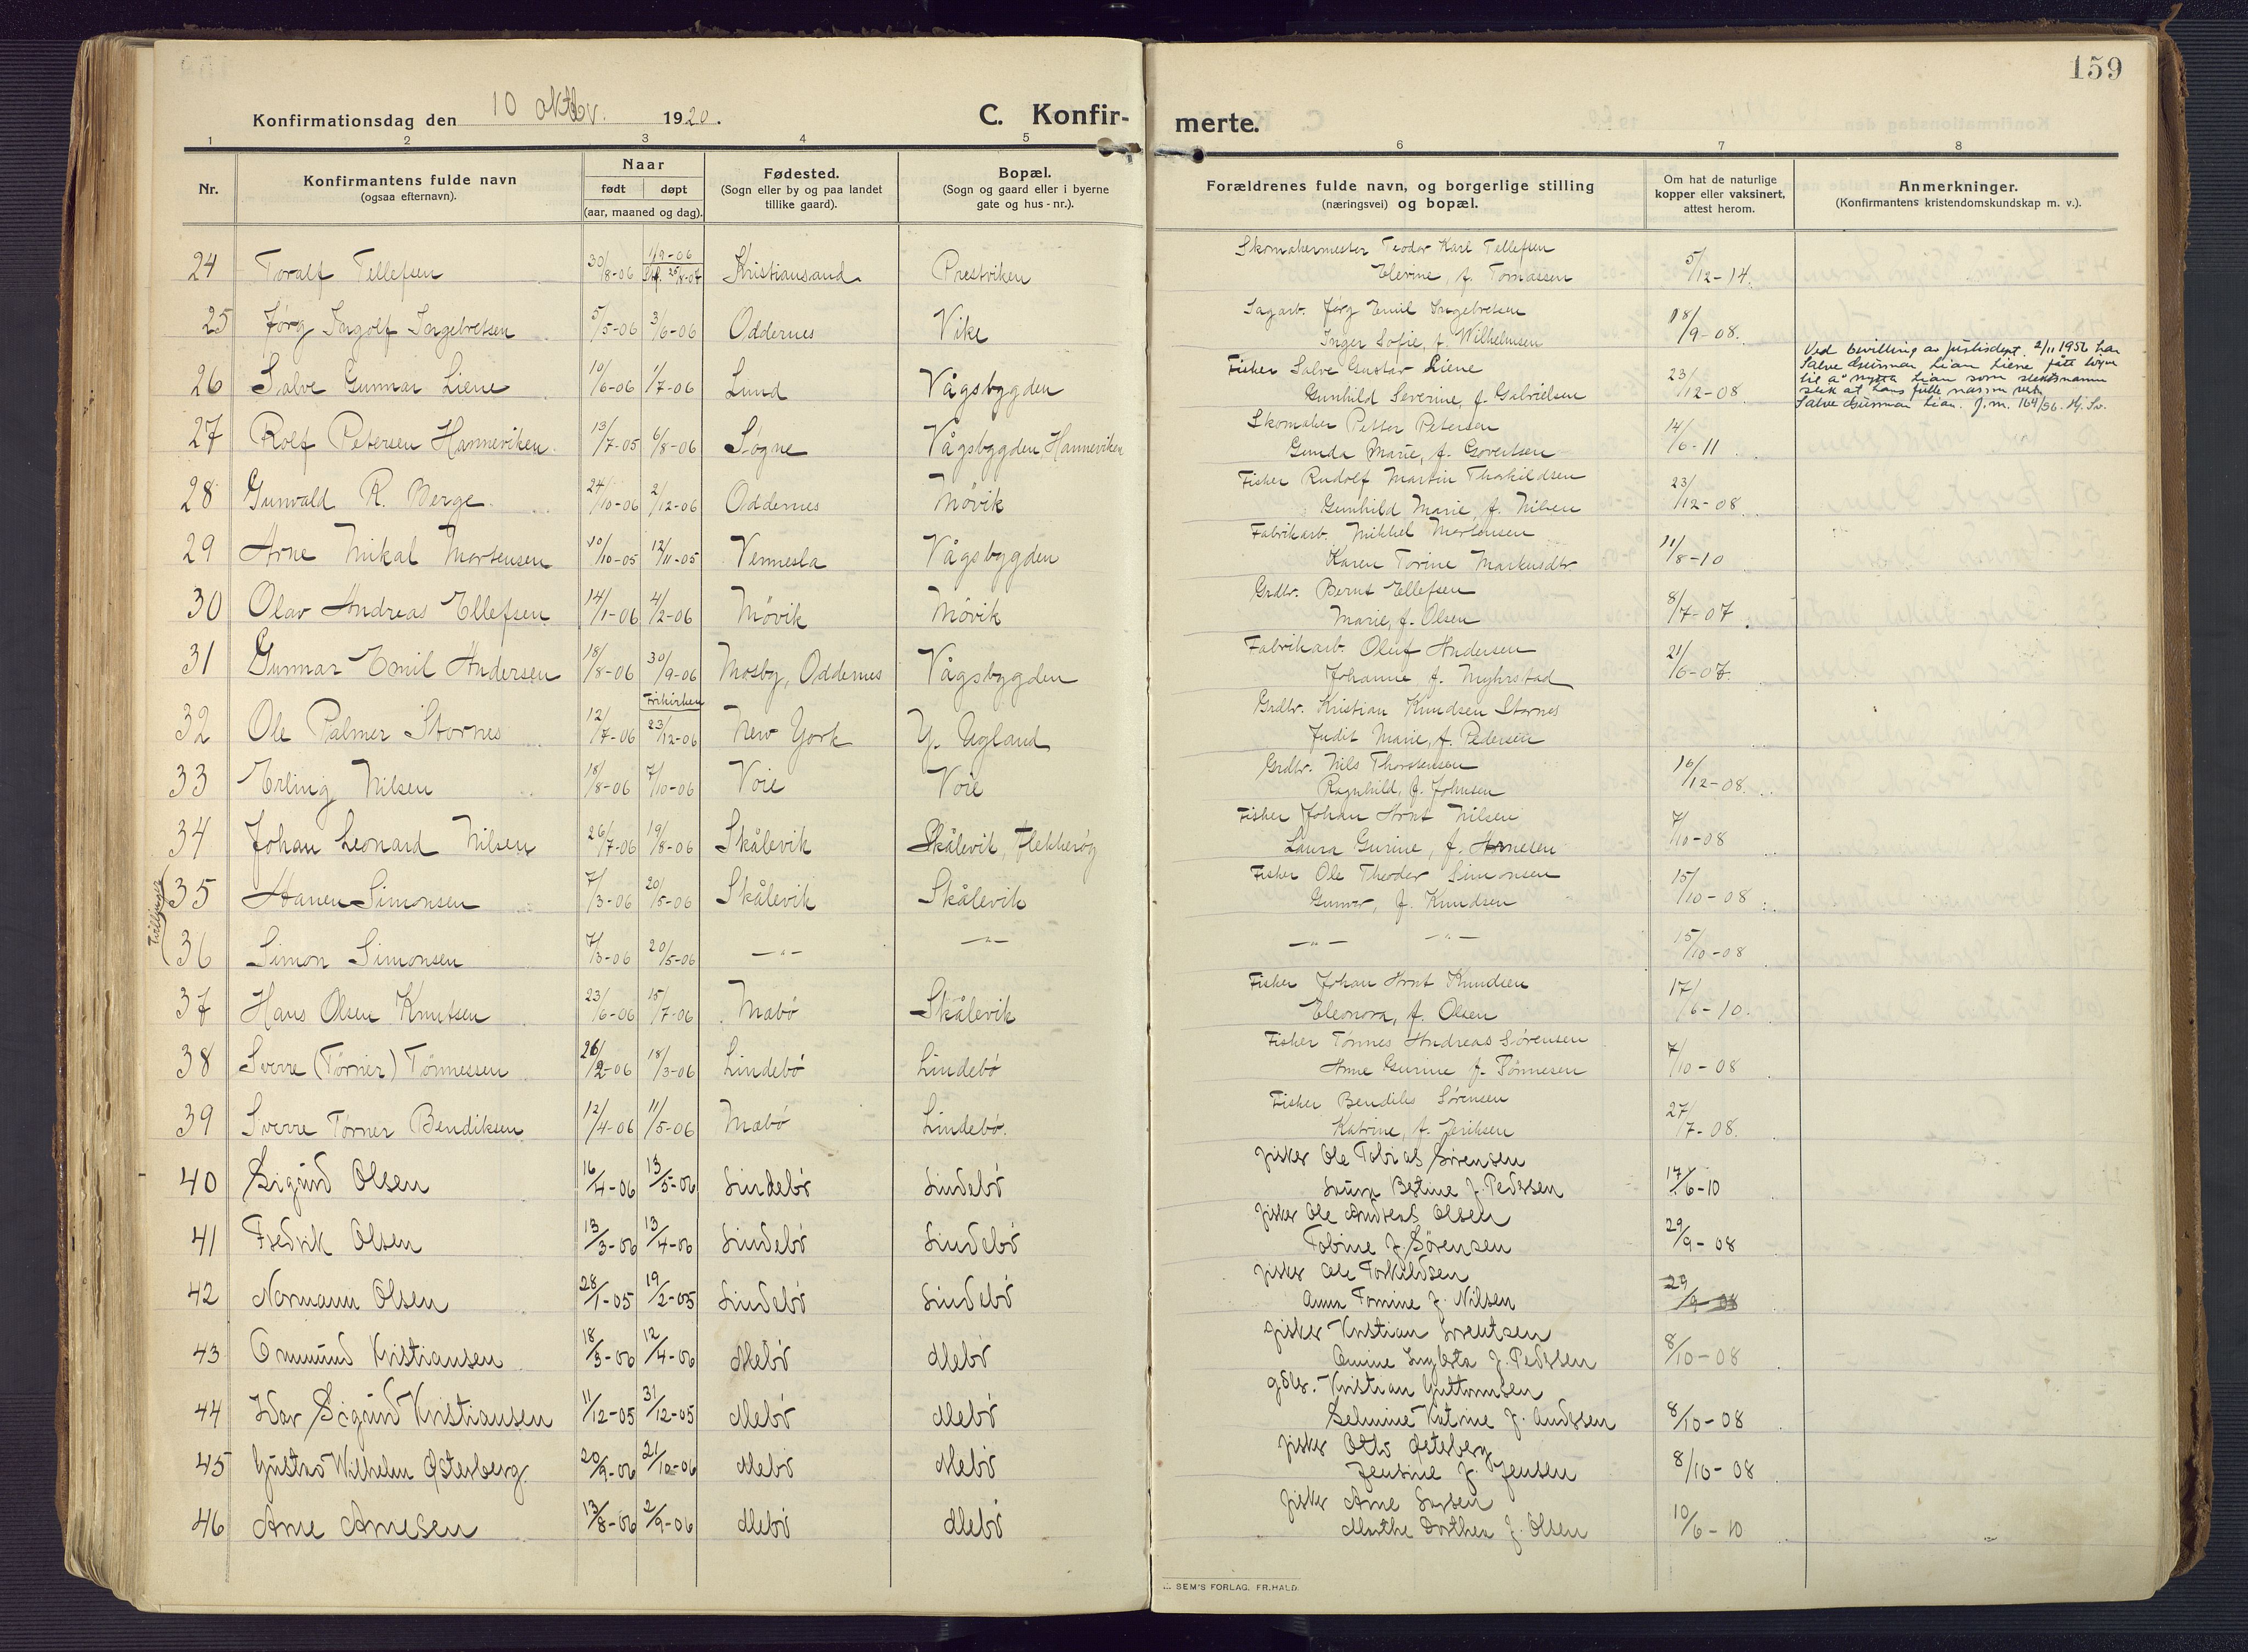 159
Konfirmationsdag den 10 oktbr. 1920.
C. Konfir-
merte.
1 2 3 4 5 6 7 8
Nr.
Konfirmantens fulde navn
(ogsaa efternavn).
Naar
født døpt
(aar, maaned og dag).
Fødested.
(Sogn eller by og paa landet
tillike gaard).
Bopæl.
(Sogn og gaard eller i byerne
gate og hus-nr.).
Forældrenes fulde navn, og borgerlige stilling
(næringsvei) og bopæl.
Om hat de naturlige
kopper eller vaksinert,
attest herom.
Anmerkninger.
(Konfirmantens kristendomskundskap m. v.).
24 Toralf Tellefsen 30/8-06 1/9-06 25/8-07 Kristiansand Prestviken
Skomakermester Teodor Karl Tellefsen
Elevine, f. Tomassen 5/12-14.
25 Jørg Ingolf Ingebretsen 5/5-06 3/6-06 Oddernes Vike
Sagarb. Jørg Emil Ingebretsen
Inger Sofie, f. Wilhelmsen 18/9-08.
26 Salve Gunnar Liene 10/6-06 1/7-06 Lund Vågsbygden
Fisker Salve Gustav Liene
Gunhild Severine, f. Gabrielsen 23/12-08
Ved bevilling av justisdept. 2/11 1956 har
Salve Gunnar Lian Liene fått løyve
til a nytta Lian som slektsnamn
slik at hans fulle namn
Salve Gunnar Lian. J.m. 164/56. Hj. Sv.
27 Rolf Petersen Hanneviken. 13/7-05 6/8-06 Søgne Vågsbygden, Hanneviken
Skomaker Petter Petersen
Gunda Marie, f. Govertsen 14/6-11
28 Gunvald R. Berge. 24/10-06 2/12-06 Oddernes Møvik
Fisker Rudolf Martin Thorkildsen
Gunhild Marie, f. Nilsen 23/12-08.
29 Arne Mikal Mortensen 10/10-05 12/11-05 Vennesla Vågsbygden
Fabrikarb. Mikkel Mortensen
Karen Torine Markusdtr. 11/8-10
30 Olav Andreas Ellefsen 14/1-06 4/2-06 Møvik Møvik
Grdbr. Bernt Ellefsen
Marie, f. Olsen 8/7-07
31 Gunnar Emil Andersen 18/8-06 30/9-06 Mosby, Oddernes Vågsbygden
Fabrikarb. Oluf Andersen
Johanne, f. Myhrstad 21/6-07.
32 Ole Palmer Stornes 12/7-06 Frikirken 23/12-06 New York Y. Ugland
Grdbr. Kristian Knudsen Stornes
Judit Marie, f. Pedersen
33 Erling Nilsen 18/8-06 7/10-06 Voie Voie
Grdbr. Nils Thorstensen
Ragnhild, f. Johnsen 16/12-08.
34 Johan Leonard Nilsen 26/7-06 19/8-06 Skålevik Skålevik, Flekkerøy
Fisker Johan Arnt Nilsen
Laura Gurine, f. Arnesen 7/10-08
Tvillinger
35 Hanen Simonsen 7/3-06 20/5-06 Skålevik Skålevik
Fisker Ole Theodor Simonsen
Gunver, f. Knudsen 15/10-08
36 Simon Simonsen 7/3-06 20/5-06 —"— —"—
—"— —"— 15/10-08
37 Hans Olsen Knutsen 23/6-06 15/7-06 Mæbø Skålevik
Fisker Johan Arnt Knudsen
Eleonora, f. Olsen 17/6-10.
38 Sverre (Tørner) Tønnessen 26/2-06 18/3-06 Lindebø Lindebø
Fisker Tønnes Andreas Sørensen
Anne Gurine f. Tønnesen 7/10-08
39 Sverre Tørner Bendiksen 12/4-06 11/5-06 Mæbø Lindebø.
Fisker Bendiks Sørensen
Katrine, f. Jeriksen 27/7-08.
40 Sigurd Olsen 16/4-06 13/5-06 Lindebø Lindebø
fisker Ole Tobias Sørensen
Laura Betine f. Pedersen 17/6-10
41 Fredrik Olsen 13/3-06 13/4-06 Lindebø Lindebø
fisker Ole Andreas Olsen
Tobine f. Sørensen 29/9-08
42 Normann Olsen 28/1-05 19/2-05 Lindebø Lindebø
fisker Ole Torkildsen
Anna Tomine f. Nilsen 29/9-08
43 Ommund Kristiansen 18/3-06 12/4-06 Mebø Mebø
fisker Kristian
f. Pedersen 8/10-08
44 Idar Sigurd Kristiansen 11/12-05 31/12-05 Mebø Mebø
gdbr. Kristian Guttormsen
Selmine Katrine f. Andersen 8/10-08
45 Gustav Wilhelm Østerberg 20/9-06 21/10-06 Mebø Mebø
fisker Otto Østerberg
Jensine f. Jensen 8/10-08
46 Arne Arnesen 13/8-06 2/9-06 Mebø Mebø
fisker Arne Larsen
Marthe Dorthea f. Olsen 10/6-10
SEM'S FORLAG. FR. HALD.